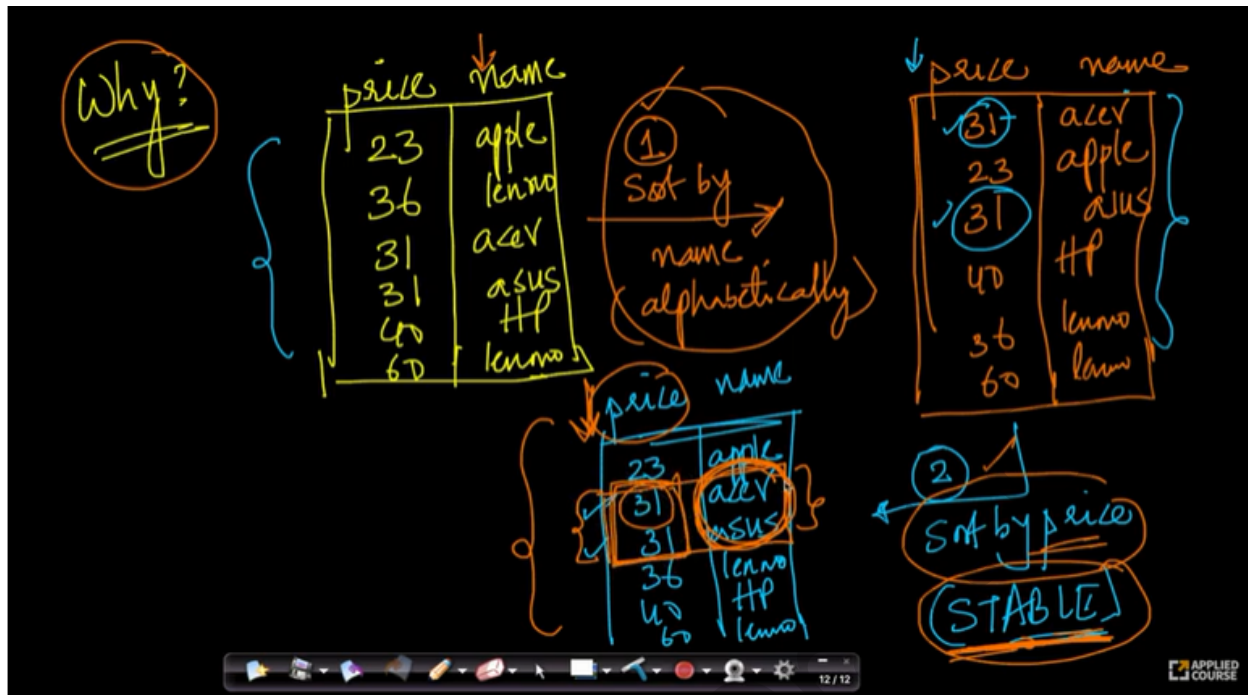 Why?
price name
23 apple
36 lenovo
31 acer
31 asus
40 HP
60 lenovo
1
Sort by
name
(alphabetically)
price name
31 acer
23 apple
31 asus
40 HP
36 lenovo
60 lenovo
2
Sort by price
(STABLE)
price name
23 apple
31 acer
31 asus
36 lenovo
40 HP
60 lenovo
12 / 12
APPLIED
COURSE